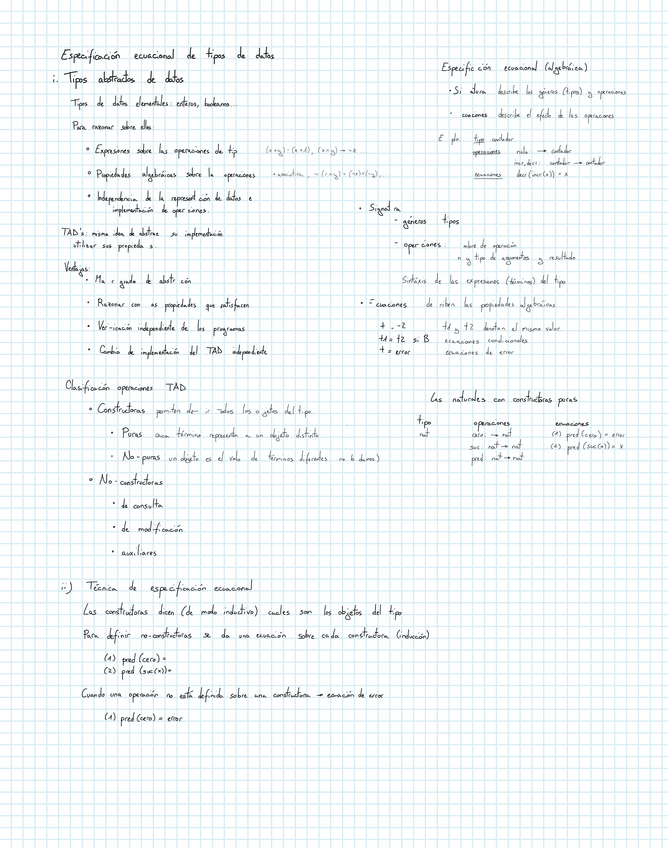 Especificación ecuacional de tipos de datos
i. Tipos abstractos de datos
Tipos de datos elementales: enteros, booleanos...
Para razonar sobre ellos:
• Expresiones sobre las operaciones de tip
• Propiedades algebráicas sobre la operaciones
• Independencia de la represent ción de datos e
implementación de oper ciones.
TAD's: misma idea de abstrae su implementación
utilizar sus propieda s.
Ventajas:
• Ma r grado de abstr ción
• Razonar con as propiedades que satisfacen
• Ver icación independiente de los programas
• Cambio de implementación del TAD independiente
Clasificación operaciones TAD
• Constructoras permiten de r todos los o jetos del tipo
• Puras término representa a un objeto distinto
• No-puras un objeto es el valo de términos diferentes
• No-constructoras
• de consulta
• de modificación
• auxiliares
ii) Técnica de especificación ecuacional
Las constructoras dicen (de modo inductivo) cuales son los objetos del tipo
Para definir no-constructoras se da una ecuación sobre cada constructora (inducción)
(1) pred (cero) =
(2) pred (suc(x)) =
Cuando una operación no está definida sobre una constructora → ecuación de error
(1) pred (cero) = error
Especific ción ecuacional (algebráica)
• Si atura describe los géneros (tipos) y operaciones
• cuaciones describe el efecto de las operaciones
E plo: tipo contador
operaciones nulo: → contador
incr, decr: contador → contador
ecuaciones decr (incr(x)) = x
• Signat ra
- géneros tipos
- oper ciones: mbre de operación
n y tipo de argumentos y resultado
Sintáxis de las expresiones (términos) del tipo
• Ecuaciones de riben las propiedades algebráicas
t1 y t2 denotan el mismo valor
t1 = t2 si B ecuaciones condicionales
t = error ecuaciones de error
Las naturales con constructoras puras
tipo operaciones ecuaciones
nat cero: → nat (1) pred (cero) = error
suc: nat → nat (2) pred (suc(x)) = x
pred: nat → nat